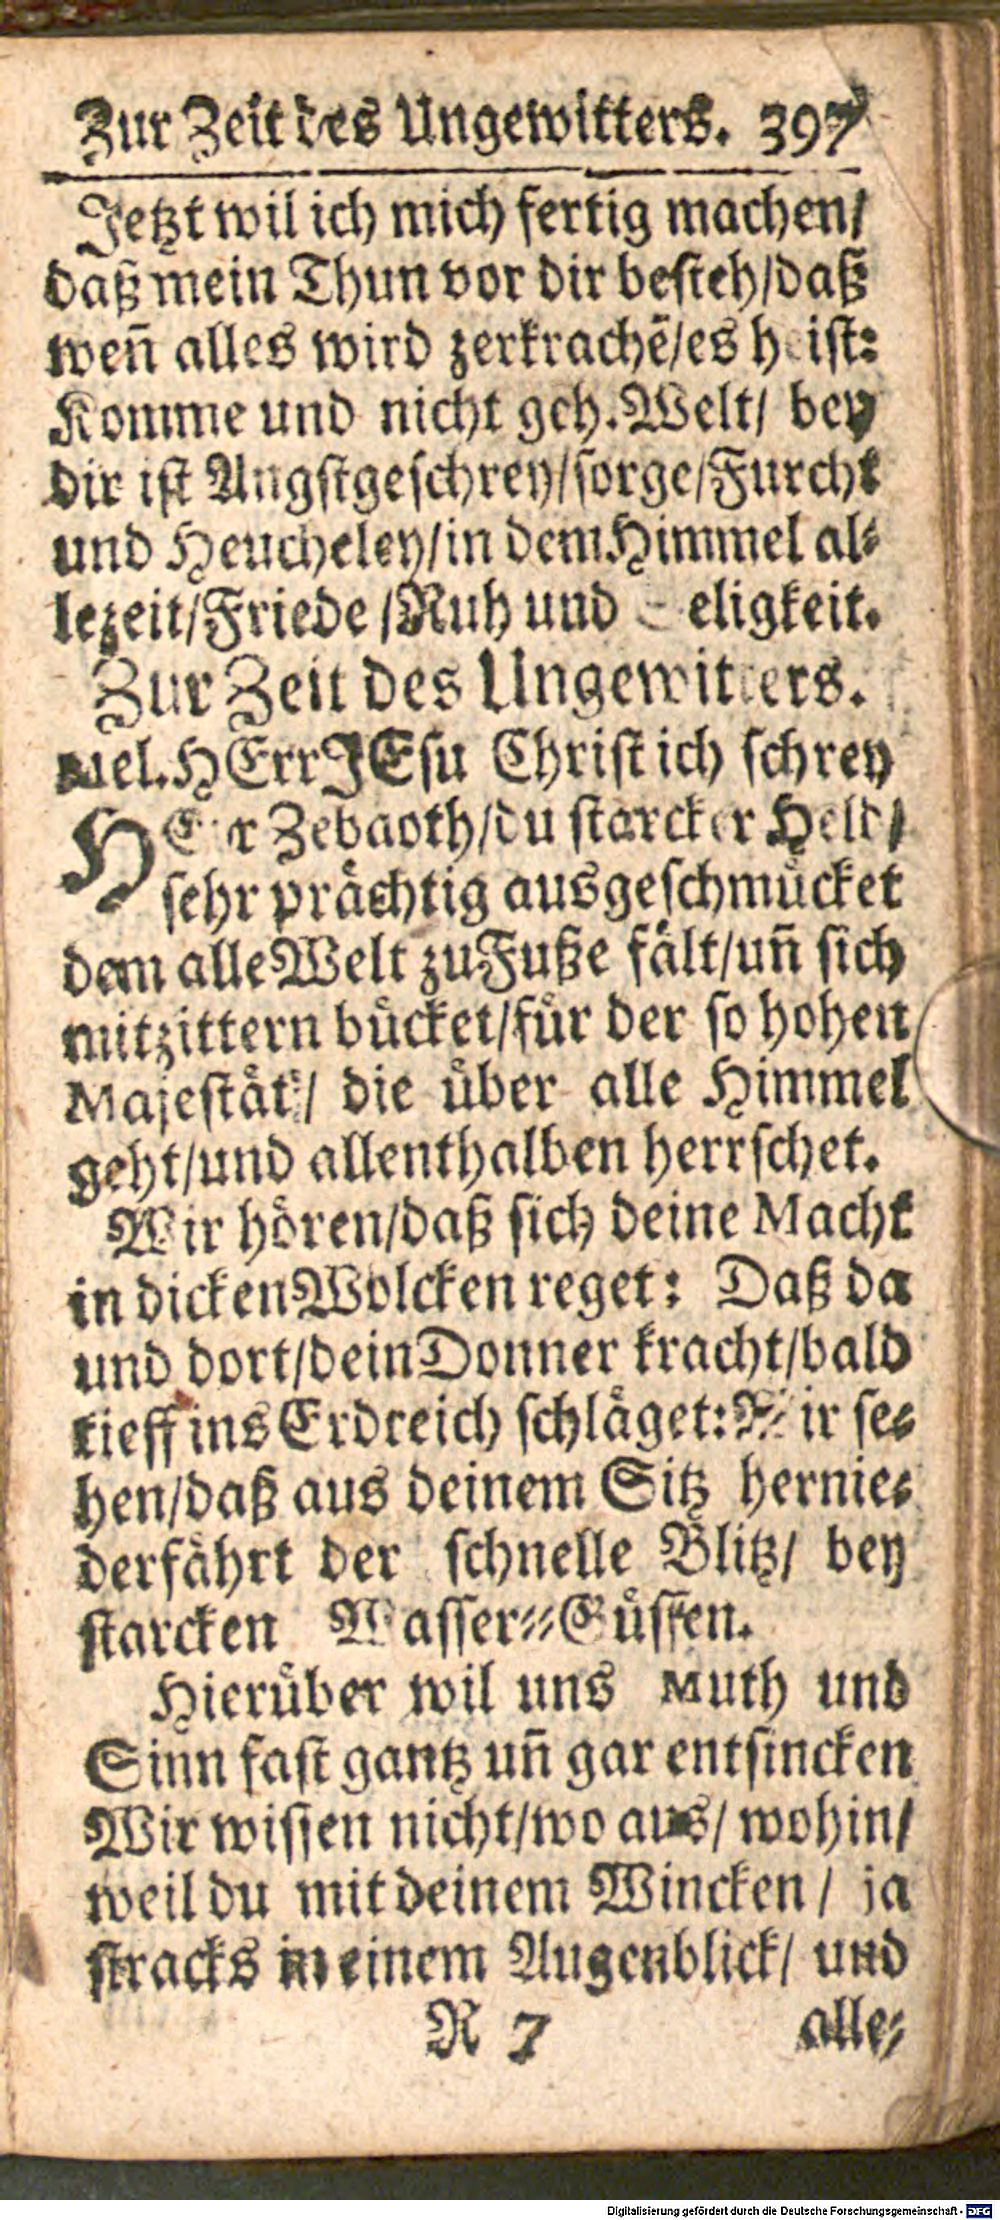 Zur Zeit des Ungewitters. 397
Jetzt wil ich mich fertig machen/
daß mein Thun vor dir besteh/daß
weñ alles wird zerkrachẽ/es heist:
Komme und nicht geh. Welt/ bey
dir ist Angstgeschrey/sorge/Furcht
und Heucheley/in dem Himmel al⸗
lezeit/Friede /Ruh und Seligkeit.
Zur Zeit des Ungewitters.
Mel. HErr JEsu Christ ich schrey
HErr Zebaoth/du starcker Held/
sehr prächtig ausgeschmücket
dem alle Welt zu Fuße fält/uñ sich
mit zittern bücket/für der so hohen
Majestät/ die über alle Himmel
geht/und allenthalben herrschet.
Wir hören/daß sich deine Macht
in dicken Wolcken reget: Daß da
und dort/dein Donner kracht/bald
tieff ins Erdreich schläget: Wir se⸗
hen/daß aus deinem Sitz hernie⸗
derfährt der schnelle Blitz/ bey
starcken Wasser⸗Güssen.
Hierüber wil uns Muth und
Sinn fast gantz uñ gar entsincken
Wir wissen nicht/wo aus/ wohin/
weil du mit deinem Wincken / ja
stracks in einem Augenblick/ und
R 7 alle⸗
Digitalisierung gefördert durch die Deutsche Forschungsgemeinschaft - DFG